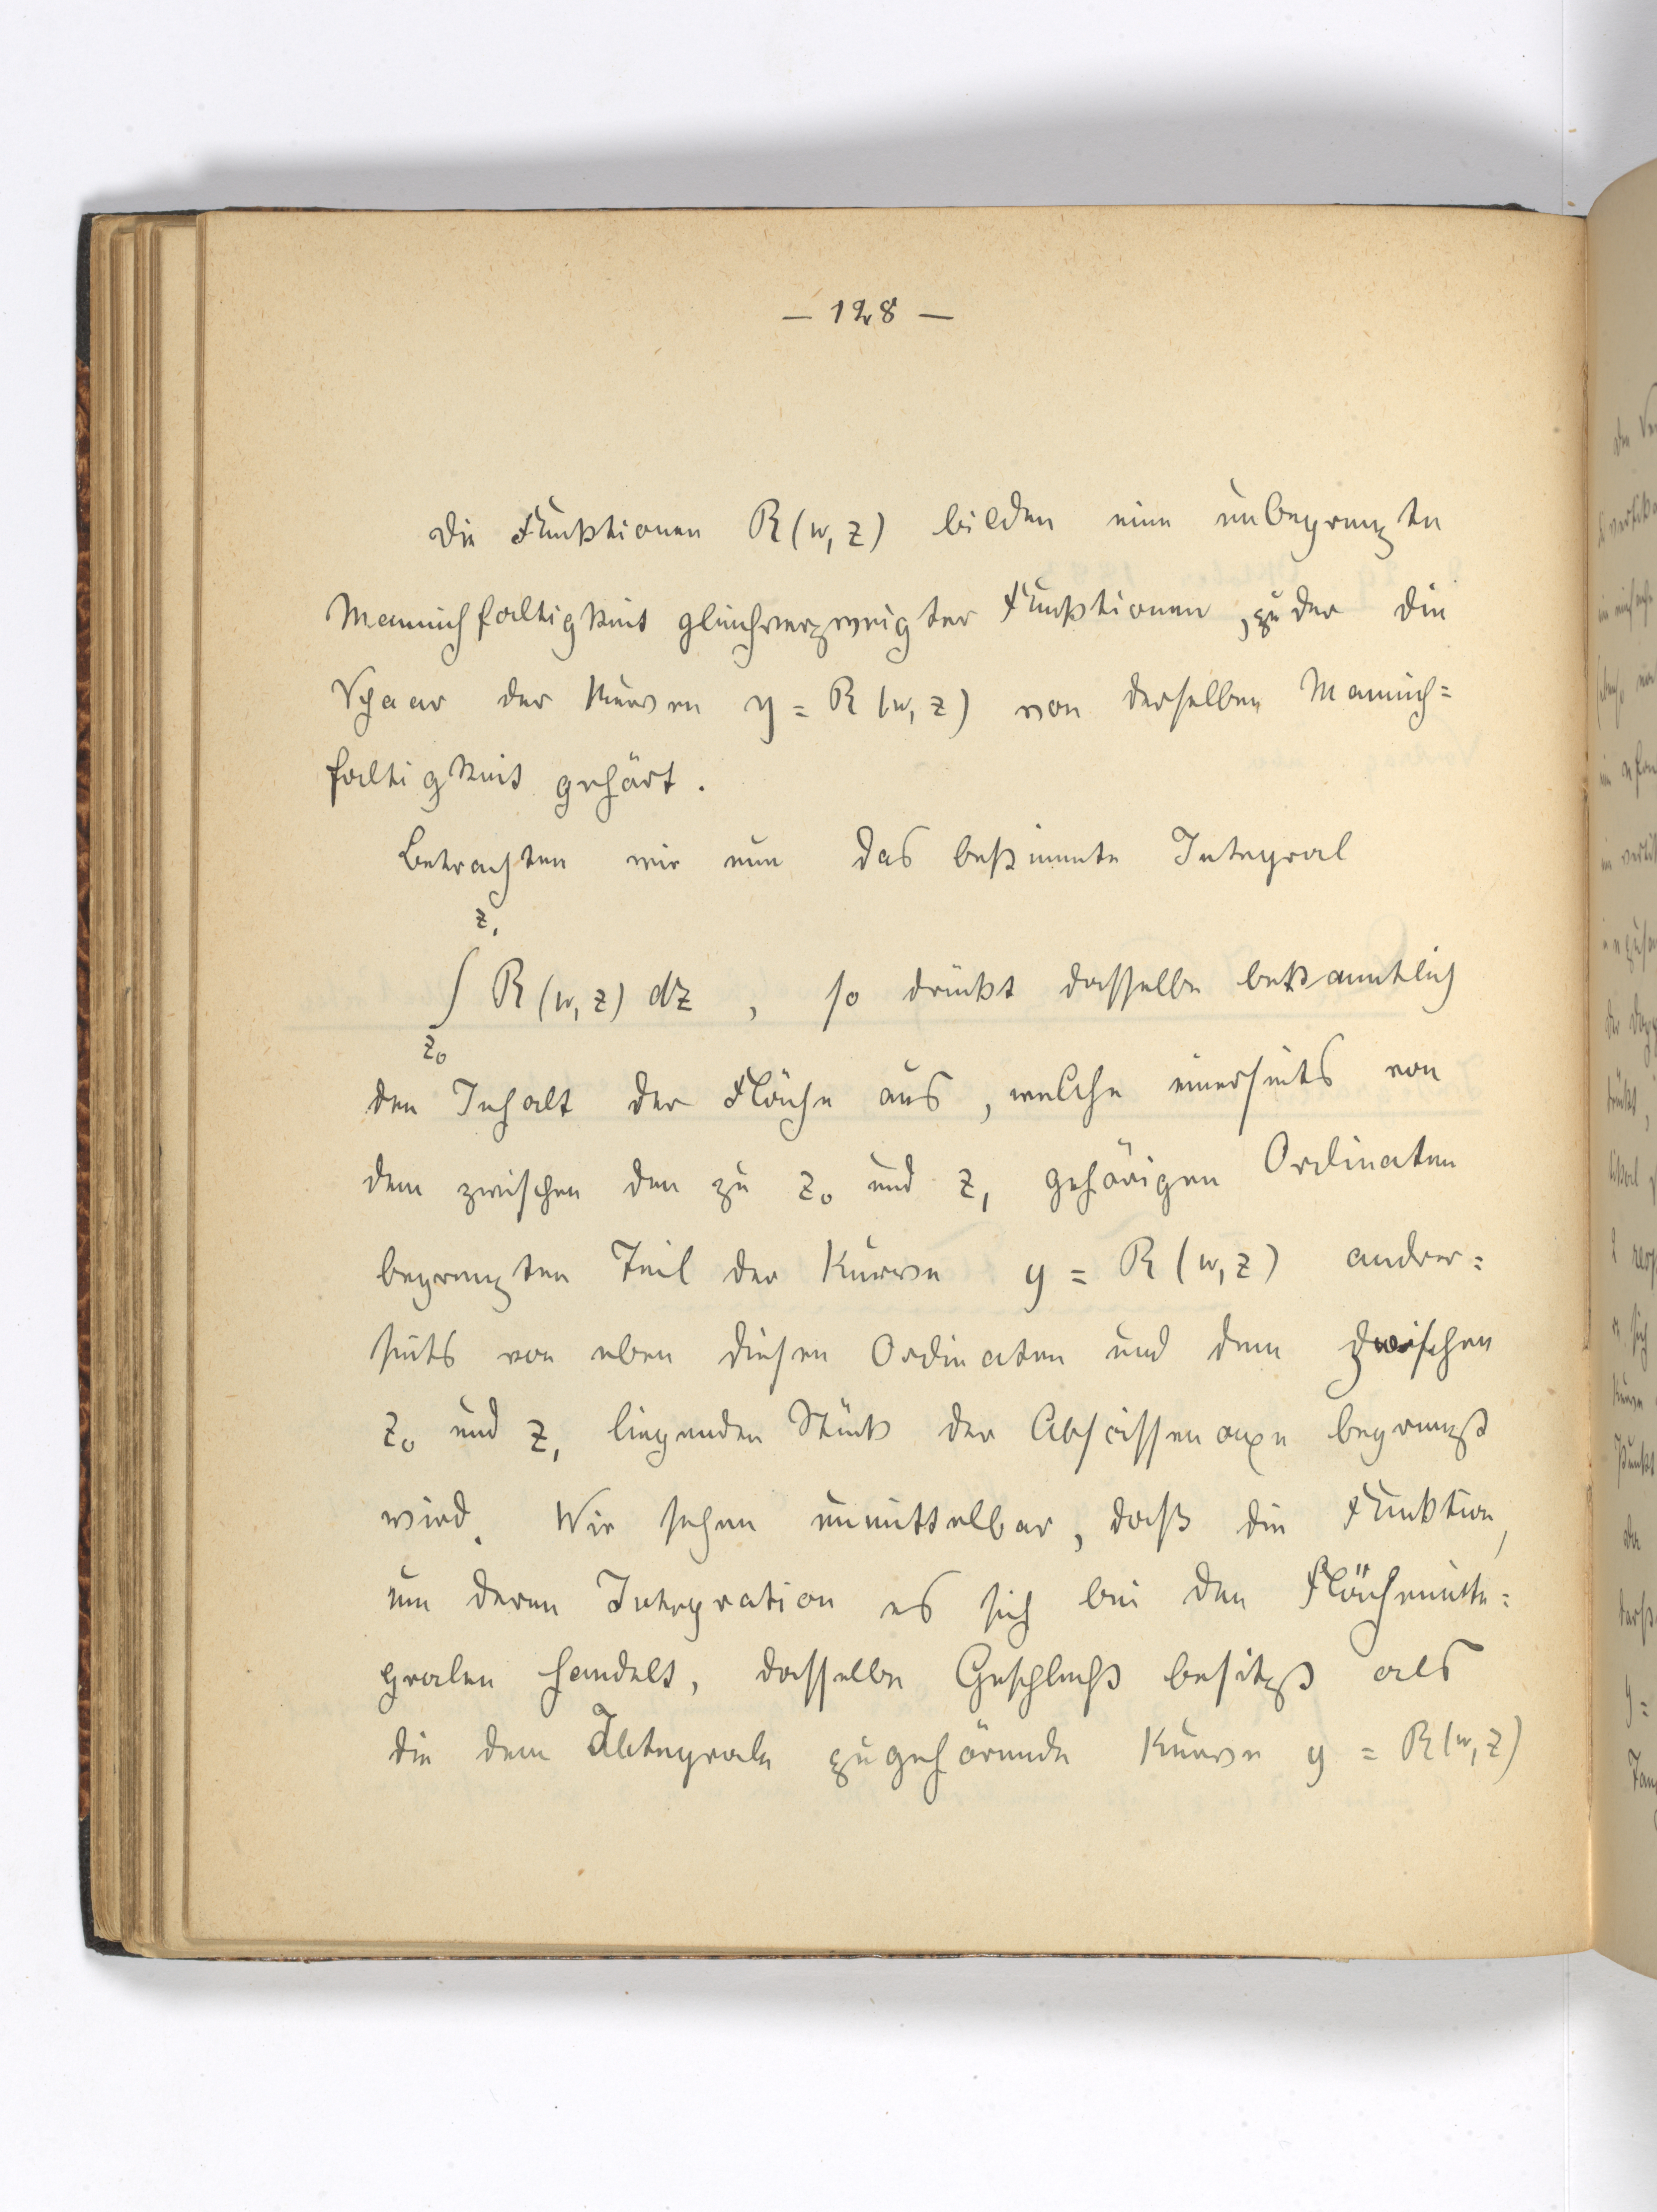 — 128 —
Die Funktionen R(w, z) bilden eine unbegrenzte
Mannichfaltigkeit gleichverzweigter Funktionen, zu der die
Schaar der Kurven y = R(w, z) von derselben Mannich=
faltigkeit gehört.
Betrachten wir nun das bestimmte Integral
z₁
∫ R(w, z) dz , so drückt dasselbe bekanntlich
z₀
den Inhalt der Fläche aus, welche einerseits von
dem zwischen den zu z₀ und z₁ gehörigen Ordinaten
begrenzten Teil der Kurve y = R(w, z) andrer=
seits von eben diesen Ordinaten und dem zwischen
z₀ und z₁ liegenden Stück der Abscissenaxe begrenzt
wird. Wir sehen unmittelbar, daß die Funktion,
um deren Integration es sich bei den Flächeninte=
gralen handelt, dasselbe Geschlecht besitzt als
die dem Integrale zugehörende Kurve y = R(w, z)